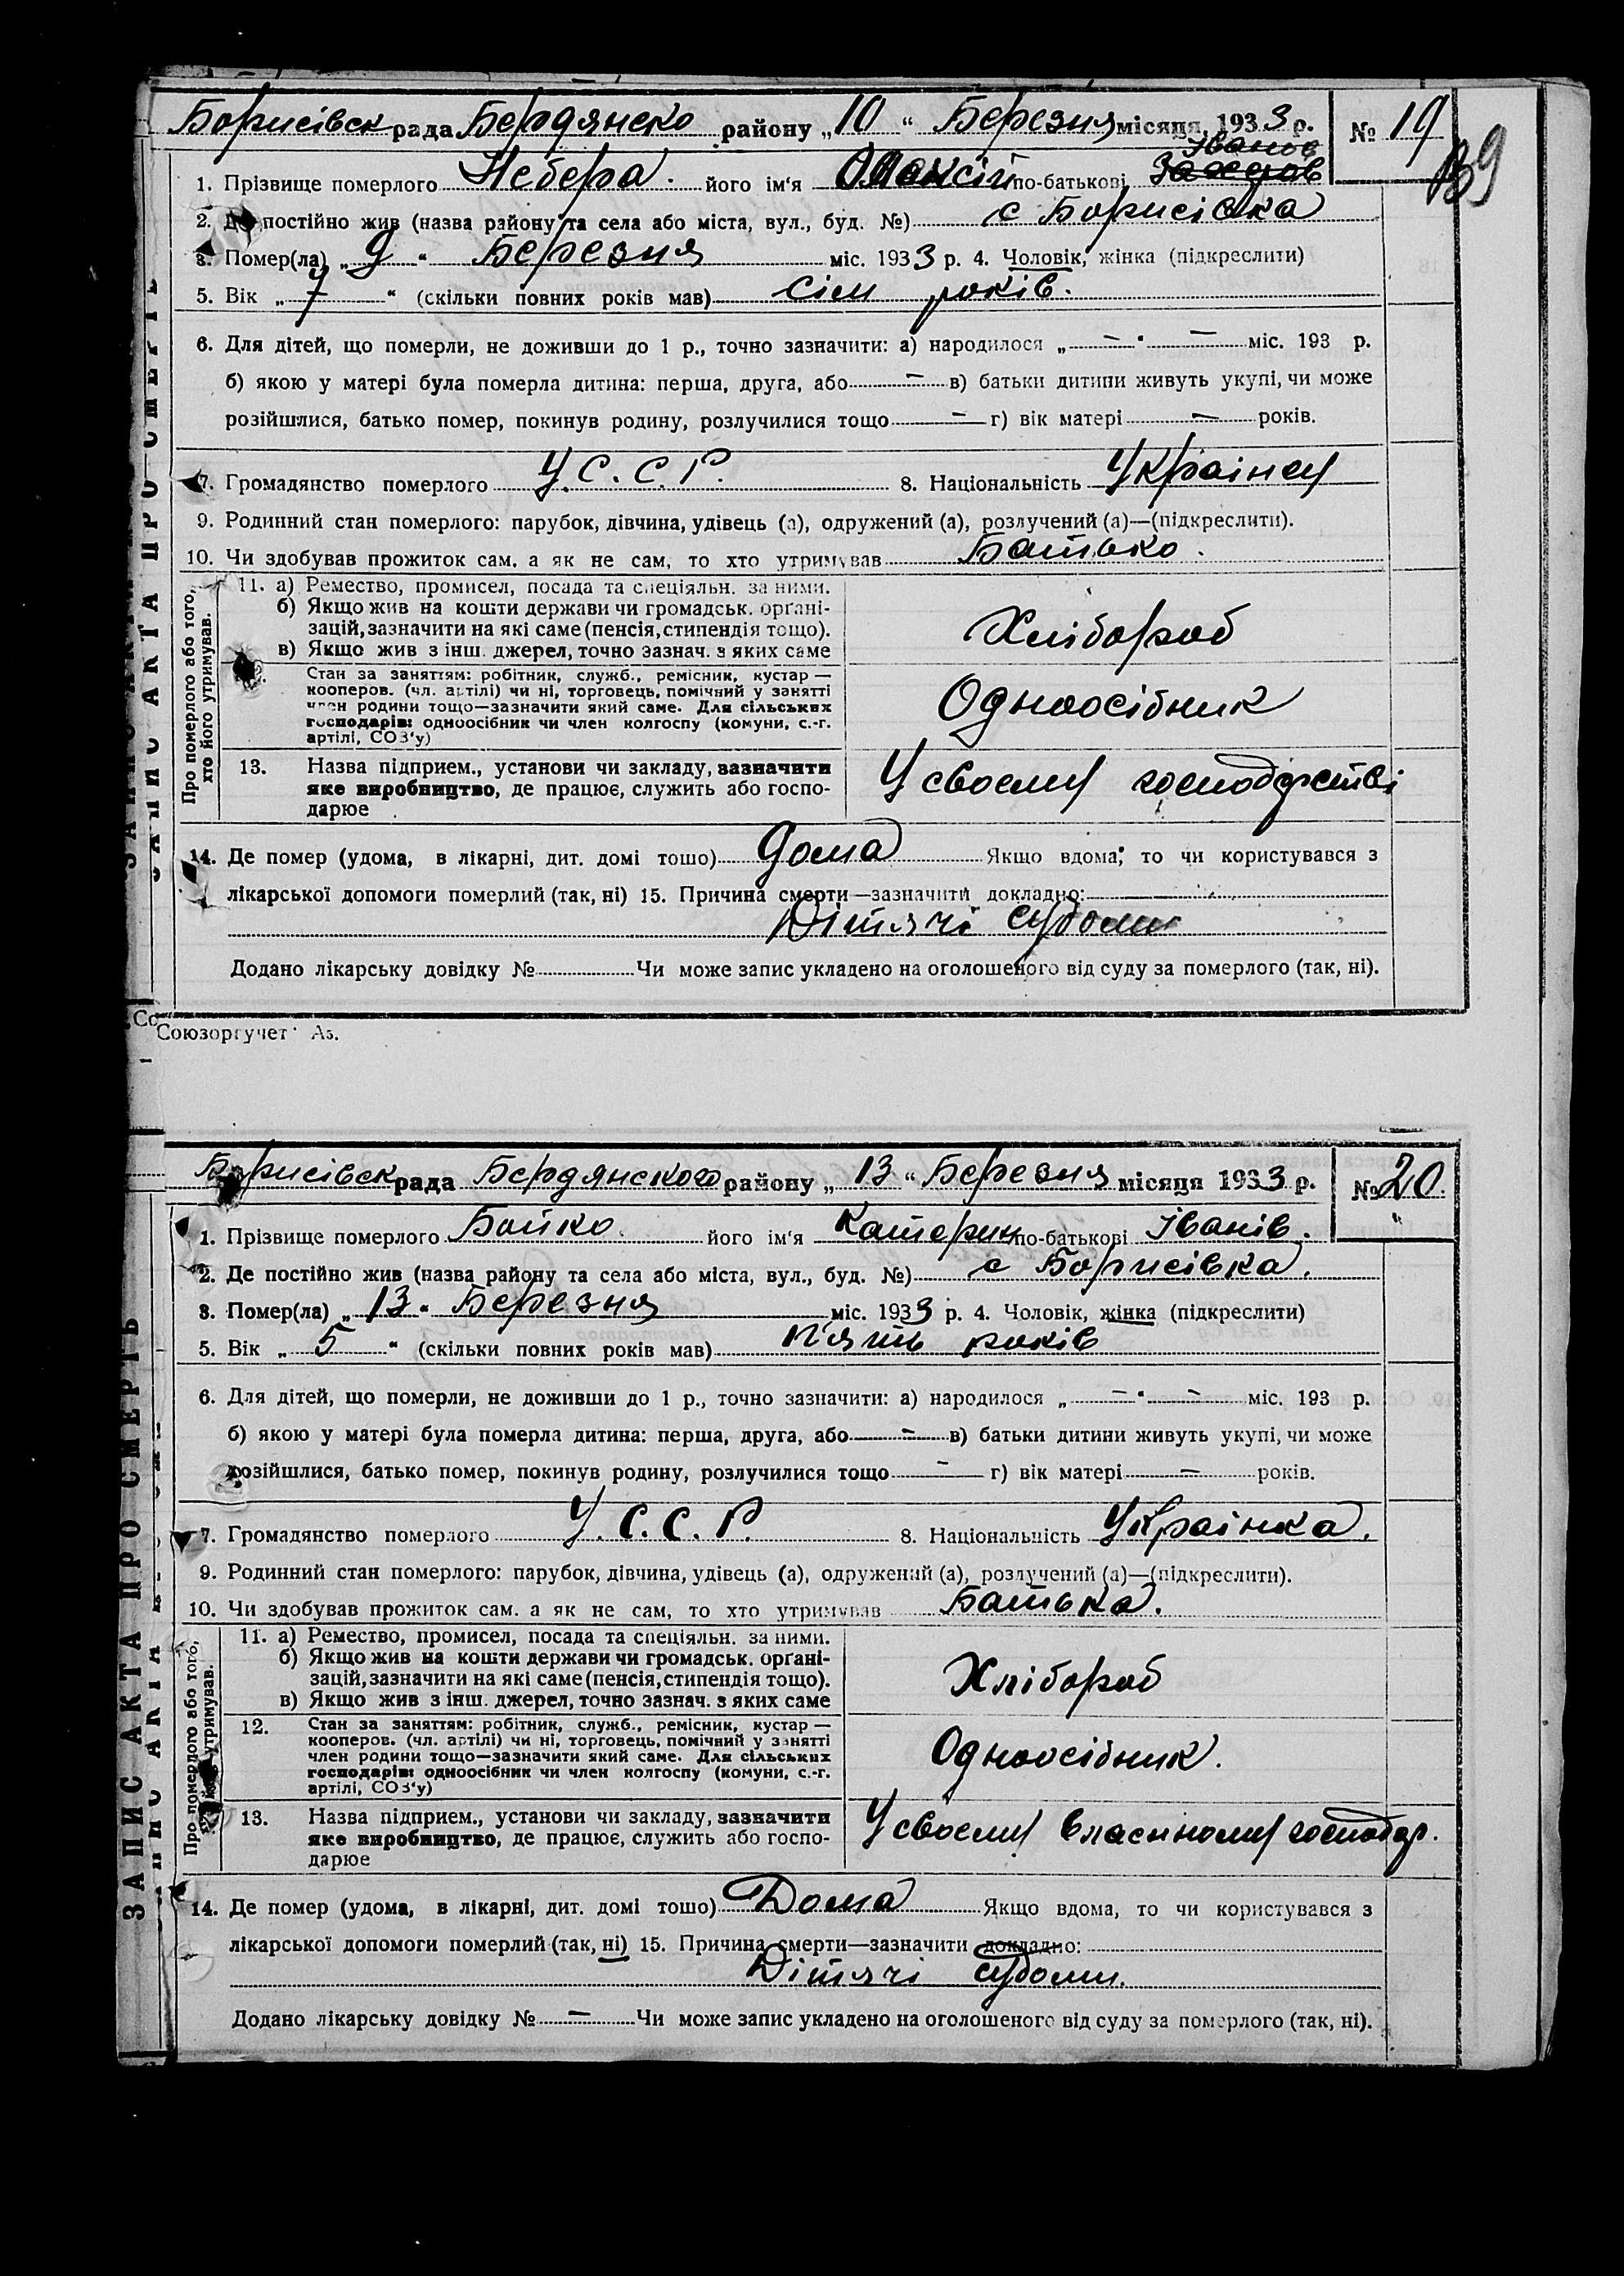 Борисівск рада Бердянско району „10“ Березня місяця 1933 р. № 19
139
Іванов
1. Прізвище померлого Небера. його ім'я по-батькові Захаров
2. Де постійно жив (назва району та села або міста, вул., буд. №) с Борисівка
3. Помер(ла) „9“ Березня міс. 1933 р. 4. Чоловік, жінка (підкреслити)
5. Вік „7“ (скільки повних років мав) сім років.
6. Для дітей, що померли, не доживши до 1 р., точно зазначити: а) народилося „ — “ — міс. 193 р.
б) якою у матері була померла дитина: перша, друга, або — в) батьки дитини живуть укупі, чи може
розійшлися, батько помер, покинув родину, розлучилися тощо — г) вік матері — років.
7. Громадянство померлого У.С.С.Р. 8. Національність Українец
9. Родинний стан померлого: парубок, дівчина, удівець (а), одружений (а), розлучений (а)—(підкреслити).
10. Чи здобував прожиток сам, а як не сам, то хто утримував Батько.
Про померлого або того, хто його утримував.
11. а) Ремество, промисел, посада та спеціяльн. за ними.
б) Якщо жив на кошти держави чи громадськ. орґані-
зацій, зазначити на які саме (пенсія, стипендія тощо).
в) Якщо жив з інш. джерел, точно зазнач. з яких саме
Хлібороб
Стан за заняттям: робітник, служб., ремісник, кустар —
кооперов. (чл. артілі) чи ні, торговець, помічний у занятті
член родини тощо—зазначити який саме. Для сільських
господарів: одноосібник чи член колгоспу (комуни, с.-г.
артілі, СОЗ'у)
Одноосібник
13. Назва підприєм., установи чи закладу, зазначити
яке виробництво, де працює, служить або госпо-
дарює
У своєму господарстві
14. Де помер (удома, в лікарні, дит. домі тощо) Дома Якщо вдома, то чи користувався з
лікарської допомоги померлий (так, ні) 15. Причина смерти—зазначити докладно:
Дітячі судоми
Додано лікарську довідку № Чи може запис укладено на оголошеного від суду за померлого (так, ні).
Союзоргучет Аз.
ЗАПИС АКТА ПРО СМЕРТЬ
Борисівск рада Бердянского району „13“ Березня місяця 1933 р. № 20.
1. Прізвище померлого Бойко. його ім'я Катерин по-батькові Іванів.
2. Де постійно жив (назва району та села або міста, вул., буд. №) с Борисівка.
3. Помер(ла) „13“ Березня міс. 1933 р. 4. Чоловік, жінка (підкреслити)
5. Вік „5“ (скільки повних років мав) п'ять років
6. Для дітей, що померли, не доживши до 1 р., точно зазначити: а) народилося „ — “ — міс. 193 р.
б) якою у матері була померла дитина: перша, друга, або — в) батьки дитини живуть укупі, чи може
розійшлися, батько помер, покинув родину, розлучилися тощо — г) вік матері — років.
7. Громадянство померлого У.С.С.Р. 8. Національність Українка.
9. Родинний стан померлого: парубок, дівчина, удівець (а), одружений (а), розлучений (а)—(підкреслити).
10. Чи здобував прожиток сам, а як не сам, то хто утримував Батька.
Про померлого або того, хто його утримував.
11. а) Ремество, промисел, посада та спеціяльн. за ними.
б) Якщо жив на кошти держави чи громадськ. орґані-
зацій, зазначити на які саме (пенсія, стипендія тощо).
в) Якщо жив з інш. джерел, точно зазнач. з яких саме
Хлібороб
12. Стан за заняттям: робітник, служб., ремісник, кустар —
кооперов. (чл. артілі) чи ні, торговець, помічний у занятті
член родини тощо—зазначити який саме. Для сільських
господарів: одноосібник чи член колгоспу (комуни, с.-г.
артілі, СОЗ'у)
Одноосібник.
13. Назва підприєм., установи чи закладу, зазначити
яке виробництво, де працює, служить або госпо-
дарює
У своєму власному господар.
14. Де помер (удома, в лікарні, дит. домі тощо) Дома Якщо вдома, то чи користувався з
лікарської допомоги померлий (так, ні) 15. Причина смерти—зазначити докладно:
Дітячі судоми.
Додано лікарську довідку № — Чи може запис укладено на оголошеного від суду за померлого (так, ні).